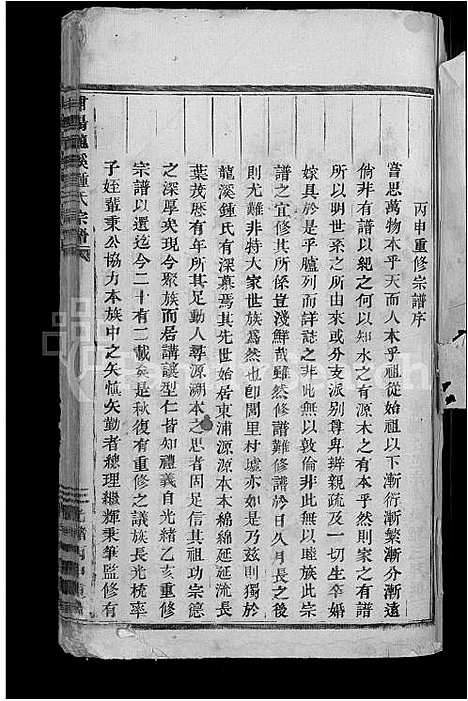 丙申重修宗譜序
嘗思萬物本乎天而人本乎祖從始祖以下漸衍漸繁漸分漸遠
倘非有譜以紀之何以知水之有源木之有本乎然則家之有譜
所以明世系之所由來或分支派別尊卑辨親疏及一切生卒婚
嫁具於是乎臚列而詳誌之非此無以敦倫非此無以睦族此宗
譜之宜修其所係豈淺鮮哉雖然修譜難修譜於日久月長之後
則尤難非特大家世族為然也卽閭里村墟亦如是乃茲則獨於
龍溪鍾氏有深慕焉其先世始居東浦源源本本綿綿延延流長
葉茂歷有年所其足動人尋源溯本之思者固足信其祖功宗德
之深厚矣現今聚族而居講讓型仁皆知禮義自光緒乙亥重修
宗譜以還迄今二十有二載矣是秋復有重修之議族長光梳率
子姪輩秉公協力本族中之矢慎矢勤者總理繼輝秉筆監修有
溪鍾氏宗譜